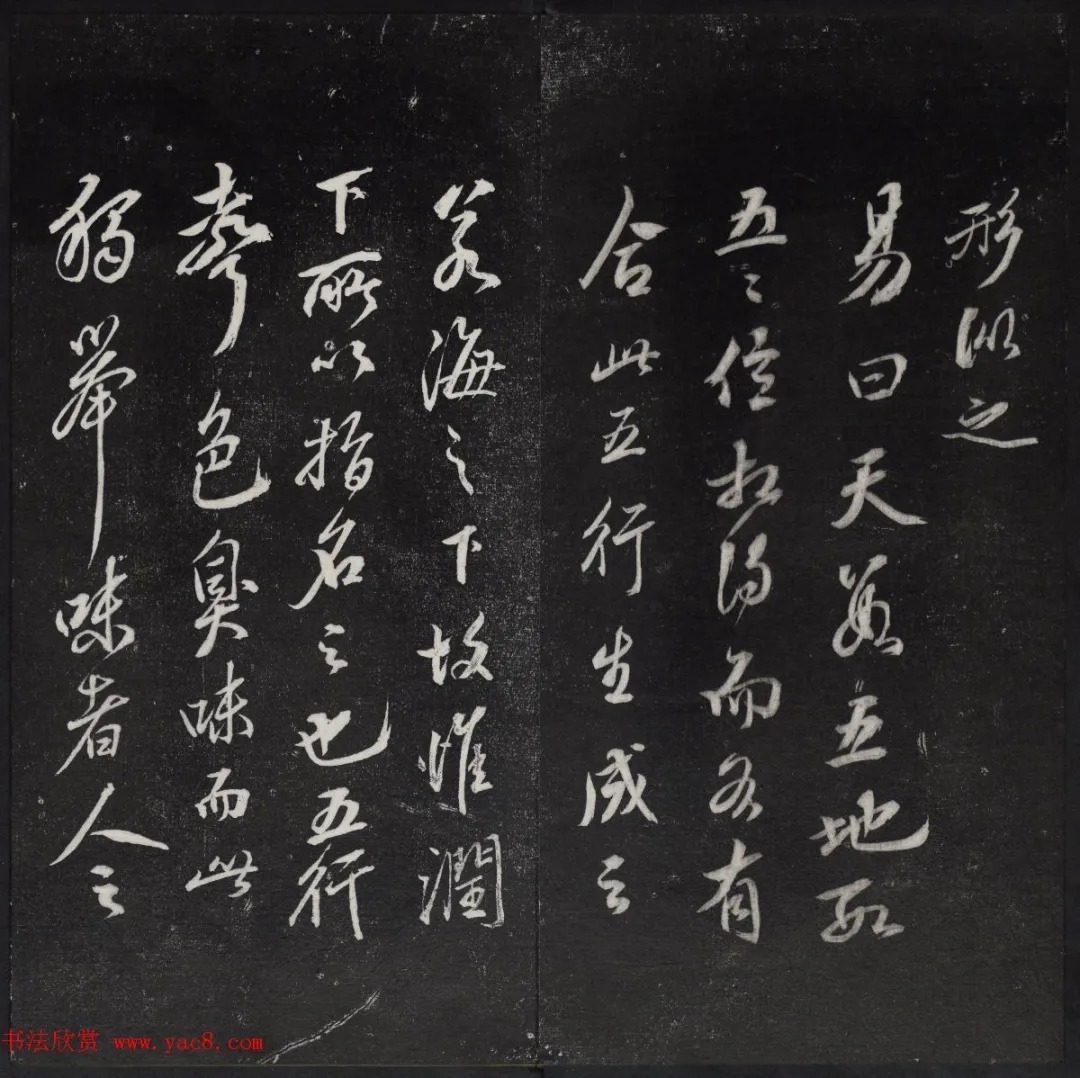 形似之
易曰天數五地數
五〻位相得而各有
合此五行生成之
若海之下故惟潤
下所以指名之也五行
聲色臭味而此
獨舉味者人之
书法欣赏 www.yac8.com